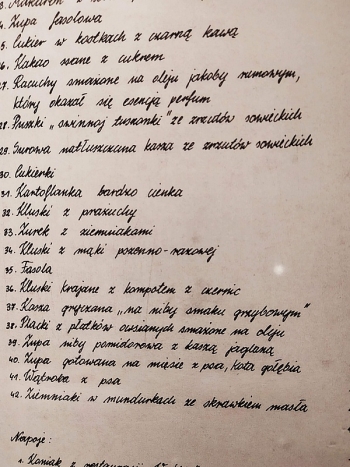 24. Zupa fasolowa
25. Cukier w kostkach z czarną kawą
26. Kakao ssane z cukrem
27. Racuchy smażone na oleju jakoby rumowym,
który okazał się esencją perfum
28. Puszki „świnnoj tuszonki" ze zrzutów sowieckich
29. Surowa natłuszczana kasza ze zrzutów sowieckich
30. Cukierki
31. Kartoflanka bardzo cienka
32. Kluski z prażuchy
33. Żurek z ziemniakami
34. Kluski z mąki pszenno-razowej
35. Fasola
36. Kluski krajane z kompotem z czernic
37. Kasza gryczana „na niby smaku grzybowym"
38. Placki z płatków owsianych smażone na oleju
39. Zupa niby pomidorowa z kaszą jaglaną
40. Zupa gotowana na mięsie z psa, kota, gołębia
41. Wątroba z psa
42. Ziemniaki w mundurkach ze skrawkiem masła
Napoje:
1. Koniak z